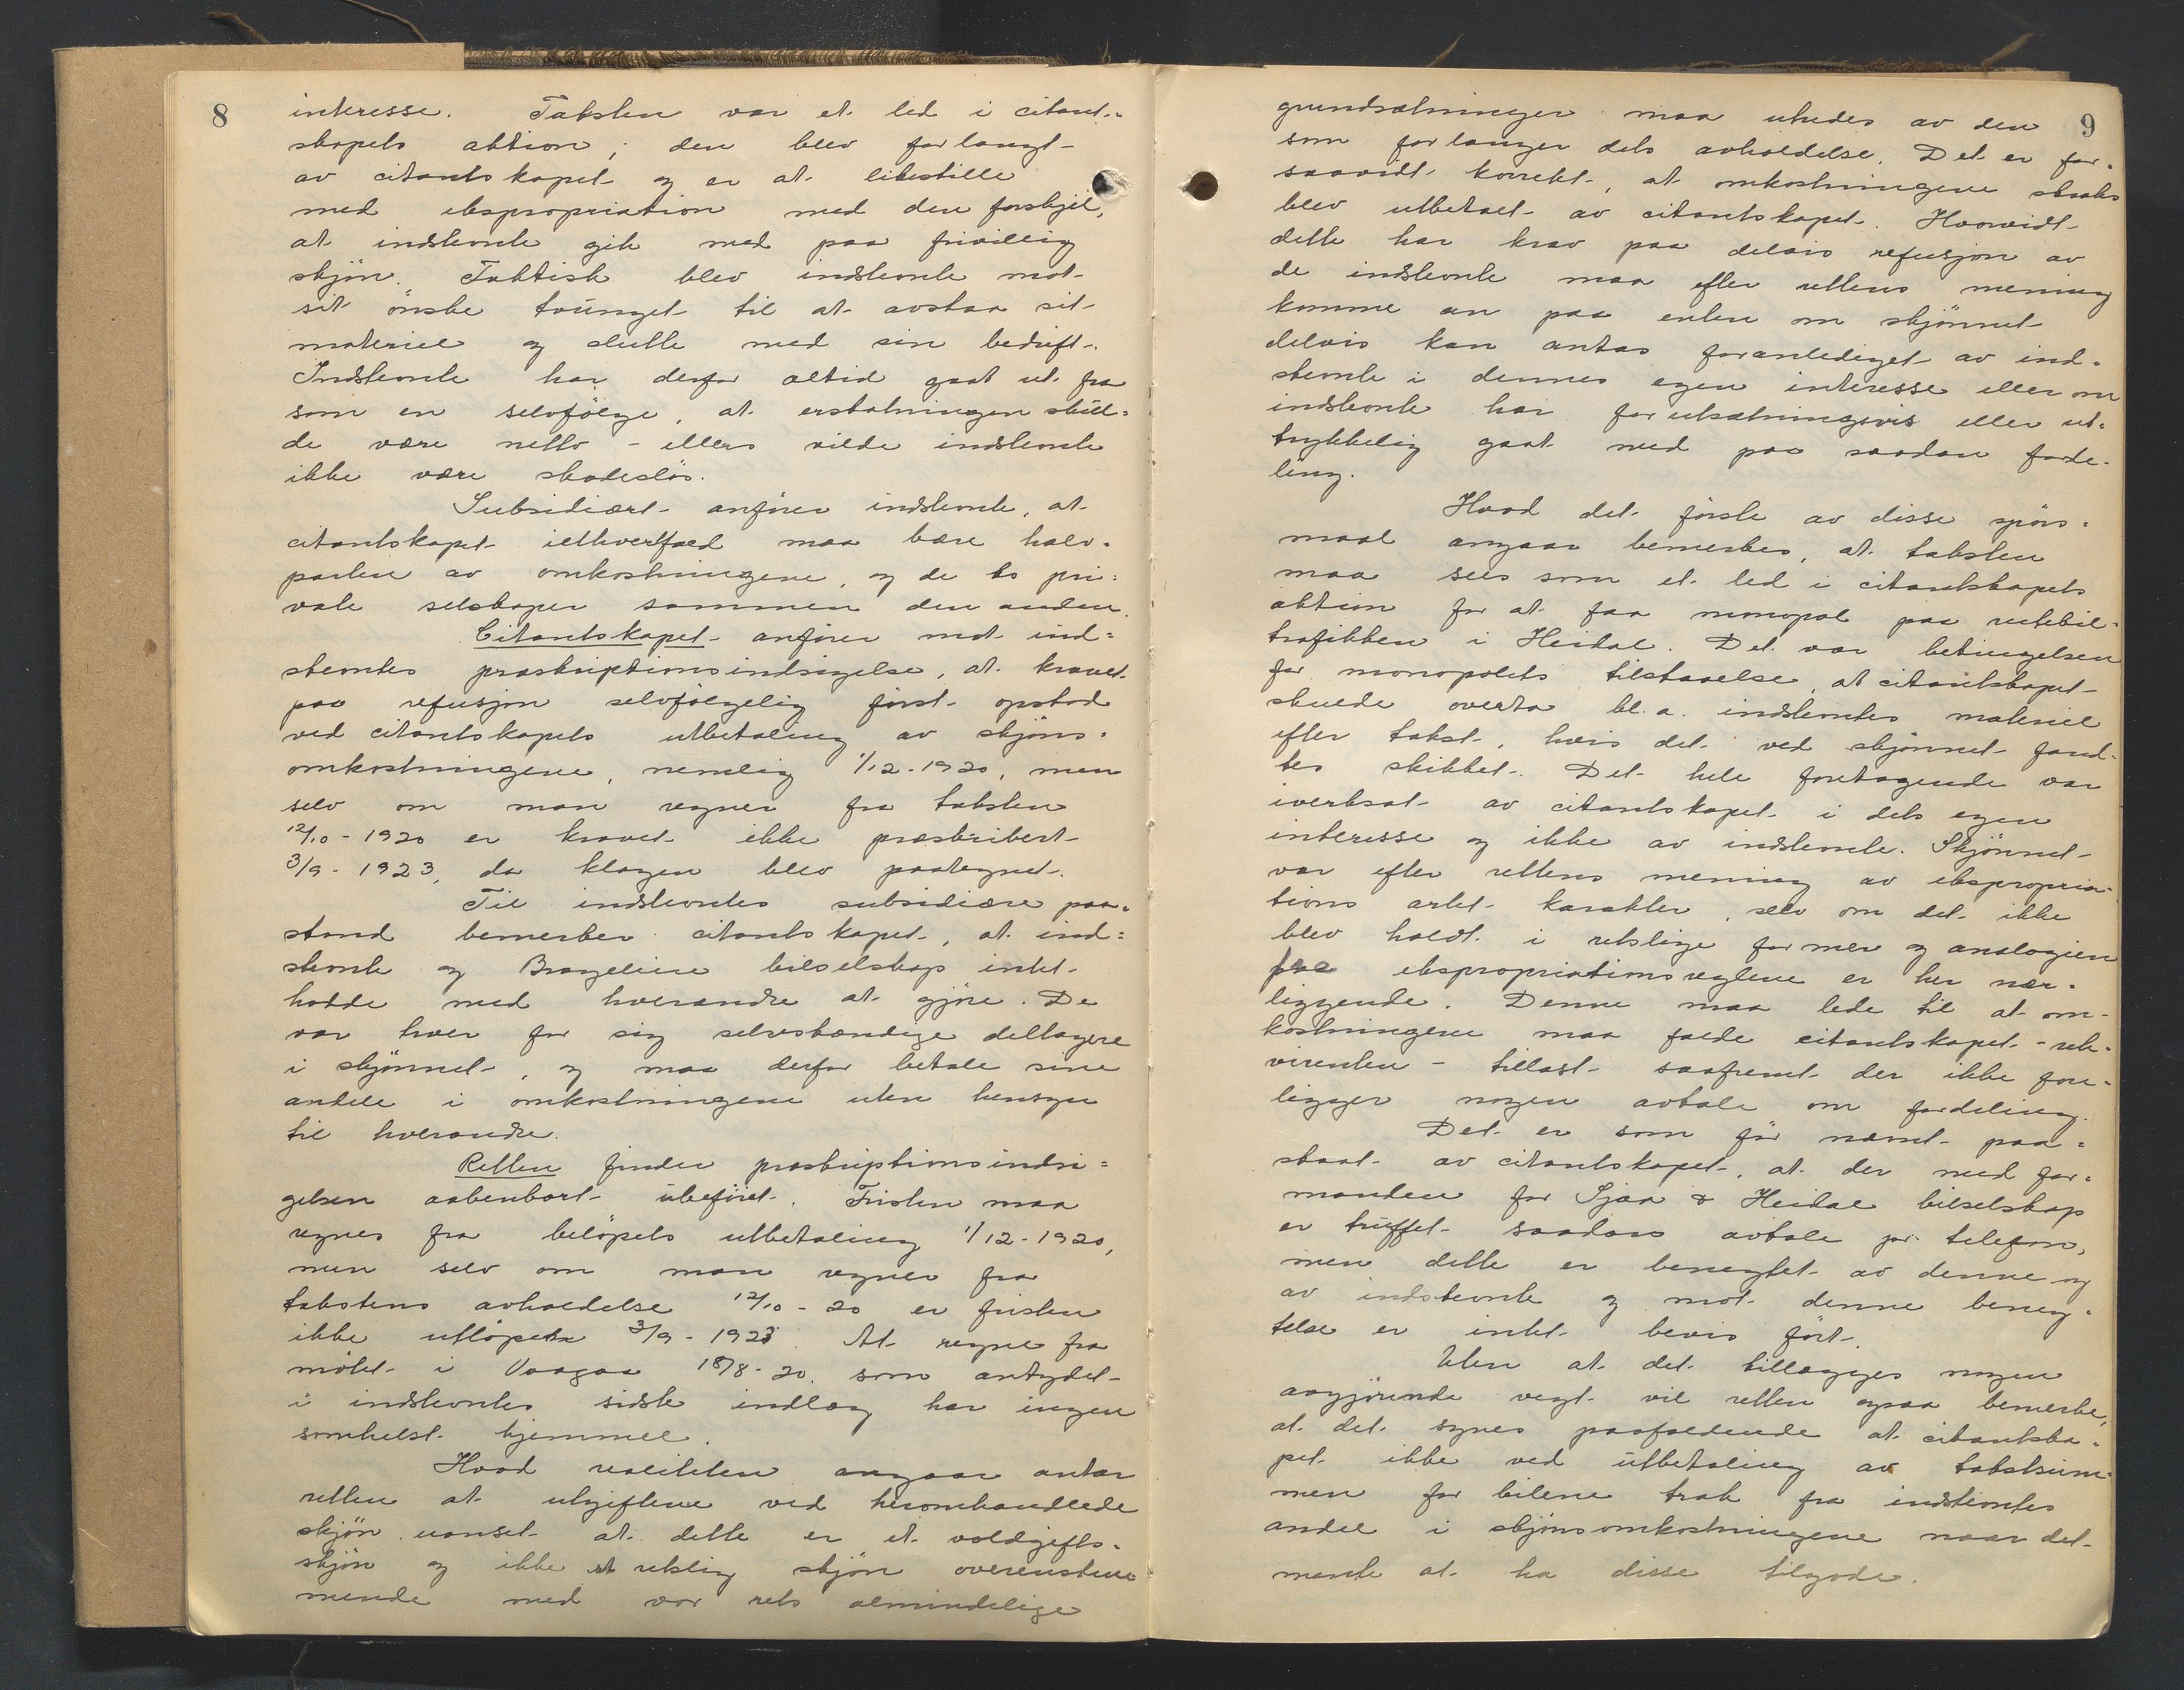 8
interesse. Taksten var et led i citant-
skapets aktion; den blev forlangt
av citantskapet og er at likestille
med ekspropriation med den forskjel,
at indstevnte gik med paa frivillig
skjøn. Faktisk blev indstevnte mot
sit ønske tvunget til at avstaa sit
materiel og slutte med sin bedrift.
Indstevnte har derfor altid gaat ut fra
som en selvfølge, at erstatningen skul-
de være netto - ellers vilde indstevnte
ikke være skadesløs.
Subsidiært anfører indstevnte, at
citantskapet ialhverfald maa bære halv-
parten av omkostningene, og de to pri-
vate selskaper sammen den anden.
Citantskapet anfører mot ind-
stevntes præskriptionsindsigelse, at kravet
paa refusjon selvfølgelig først opstod
ved citantskapets utbetaling av skjøns-
omkostningene, nemlig 1/12-1920, men
selv om man regner fra taksten
12/10-1920 er kravet ikke præskribert
3/9-1923, da klagen blev paategnet.
Til indstevntes subsidiære paa-
stand bemerker citantskapet, at ind-
stevnte og Bragelien bilselskap intet
hadde med hverandre at gjøre. De
var hver for sig selvstændige deltagere
i skjønnet, og maa derfor betale sine
andele i omkostningene uten hensyn
til hverandre.
Retten finder præskriptionsindsi-
gelsen aabenbart ubeføiet. Fristen maa
regnes fra beløpets utbetaling 1/12-1920,
men selv om man regner fra
takstens avholdelse 12/10-20 er fristen
ikke utløpet 3/9-1923. At regne fra
møtet i Vaagaa 18/8-20. som antydet
i indstevntes sidste indlæg har ingen
somhelst hjemmel.
Hvad realiteten angaar antar
retten at utgiftene ved heromhandlede
skjøn uanset at dette er et voldgifts-
skjøn og ikke et retslig skjøn overensstem
mende med vor rets almindelige
9
grundsætninger maa utredes av den
som forlanger dets avholdelse. Det er for-
saavidt korrekt, at omkostningene straks
blev utbetalt av citantskapet. Hvorvidt
dette har krav paa delvis refusjon av
de indstevnte maa efter rettens mening
komme an paa enten om skjønnet
delvis kan antas foranlediget av ind-
stevnte i dennes egen interesse eller om
indstevnte har forutsætningsvis eller ut-
trykkelig gaat med paa saadan forde-
ling.
Hvad det første av disse spørs-
maal angaar bemerkes, at taksten
maa sees som et led i citantskapets
aktion for at faa monopol paa rutebil-
trafikken i Heidal. Det var betingelsen
for monopolets tilstaaelse, at citantskapet
skulde overta bl.a. indstevntes materiel
efter takst, hvis det ved skjønnet fand-
tes skikket. Det hele foretagende var
iverksat av citantskapet i dets egen
interesse og ikke av indstevnte. Skjønnet
var efter rettens mening av ekspropria-
tions artet karakter, selv om det ikke
blev holdt i retslige former og analogien
fra ekspropriationsreglene er her nær-
liggende. Denne maa lede til at om-
kostningene maa falde citantskapet - rek-
virenten - tillast saafremt der ikke fore-
ligger nogen avtale om fordeling.
Det er som før nævnt paa-
staat av citantskapet, at der med for-
manden for Sjoa & Heidal bilselskap
er truffet saadan avtale pr. telefon,
men dette er benegtet av denne og
av indstevnte og mot denne beneg-
telse er intet bevis ført.
Uten at det tillægges nogen
avgjørende vegt vil retten ogsaa bemerke,
at det synes paafaldende at citantska-
pet ikke ved utbetaling av takstsum-
men for bilene trak fra indstevntes
andel i skjønsomkostningene naar det
mente at ha disse tilgode.